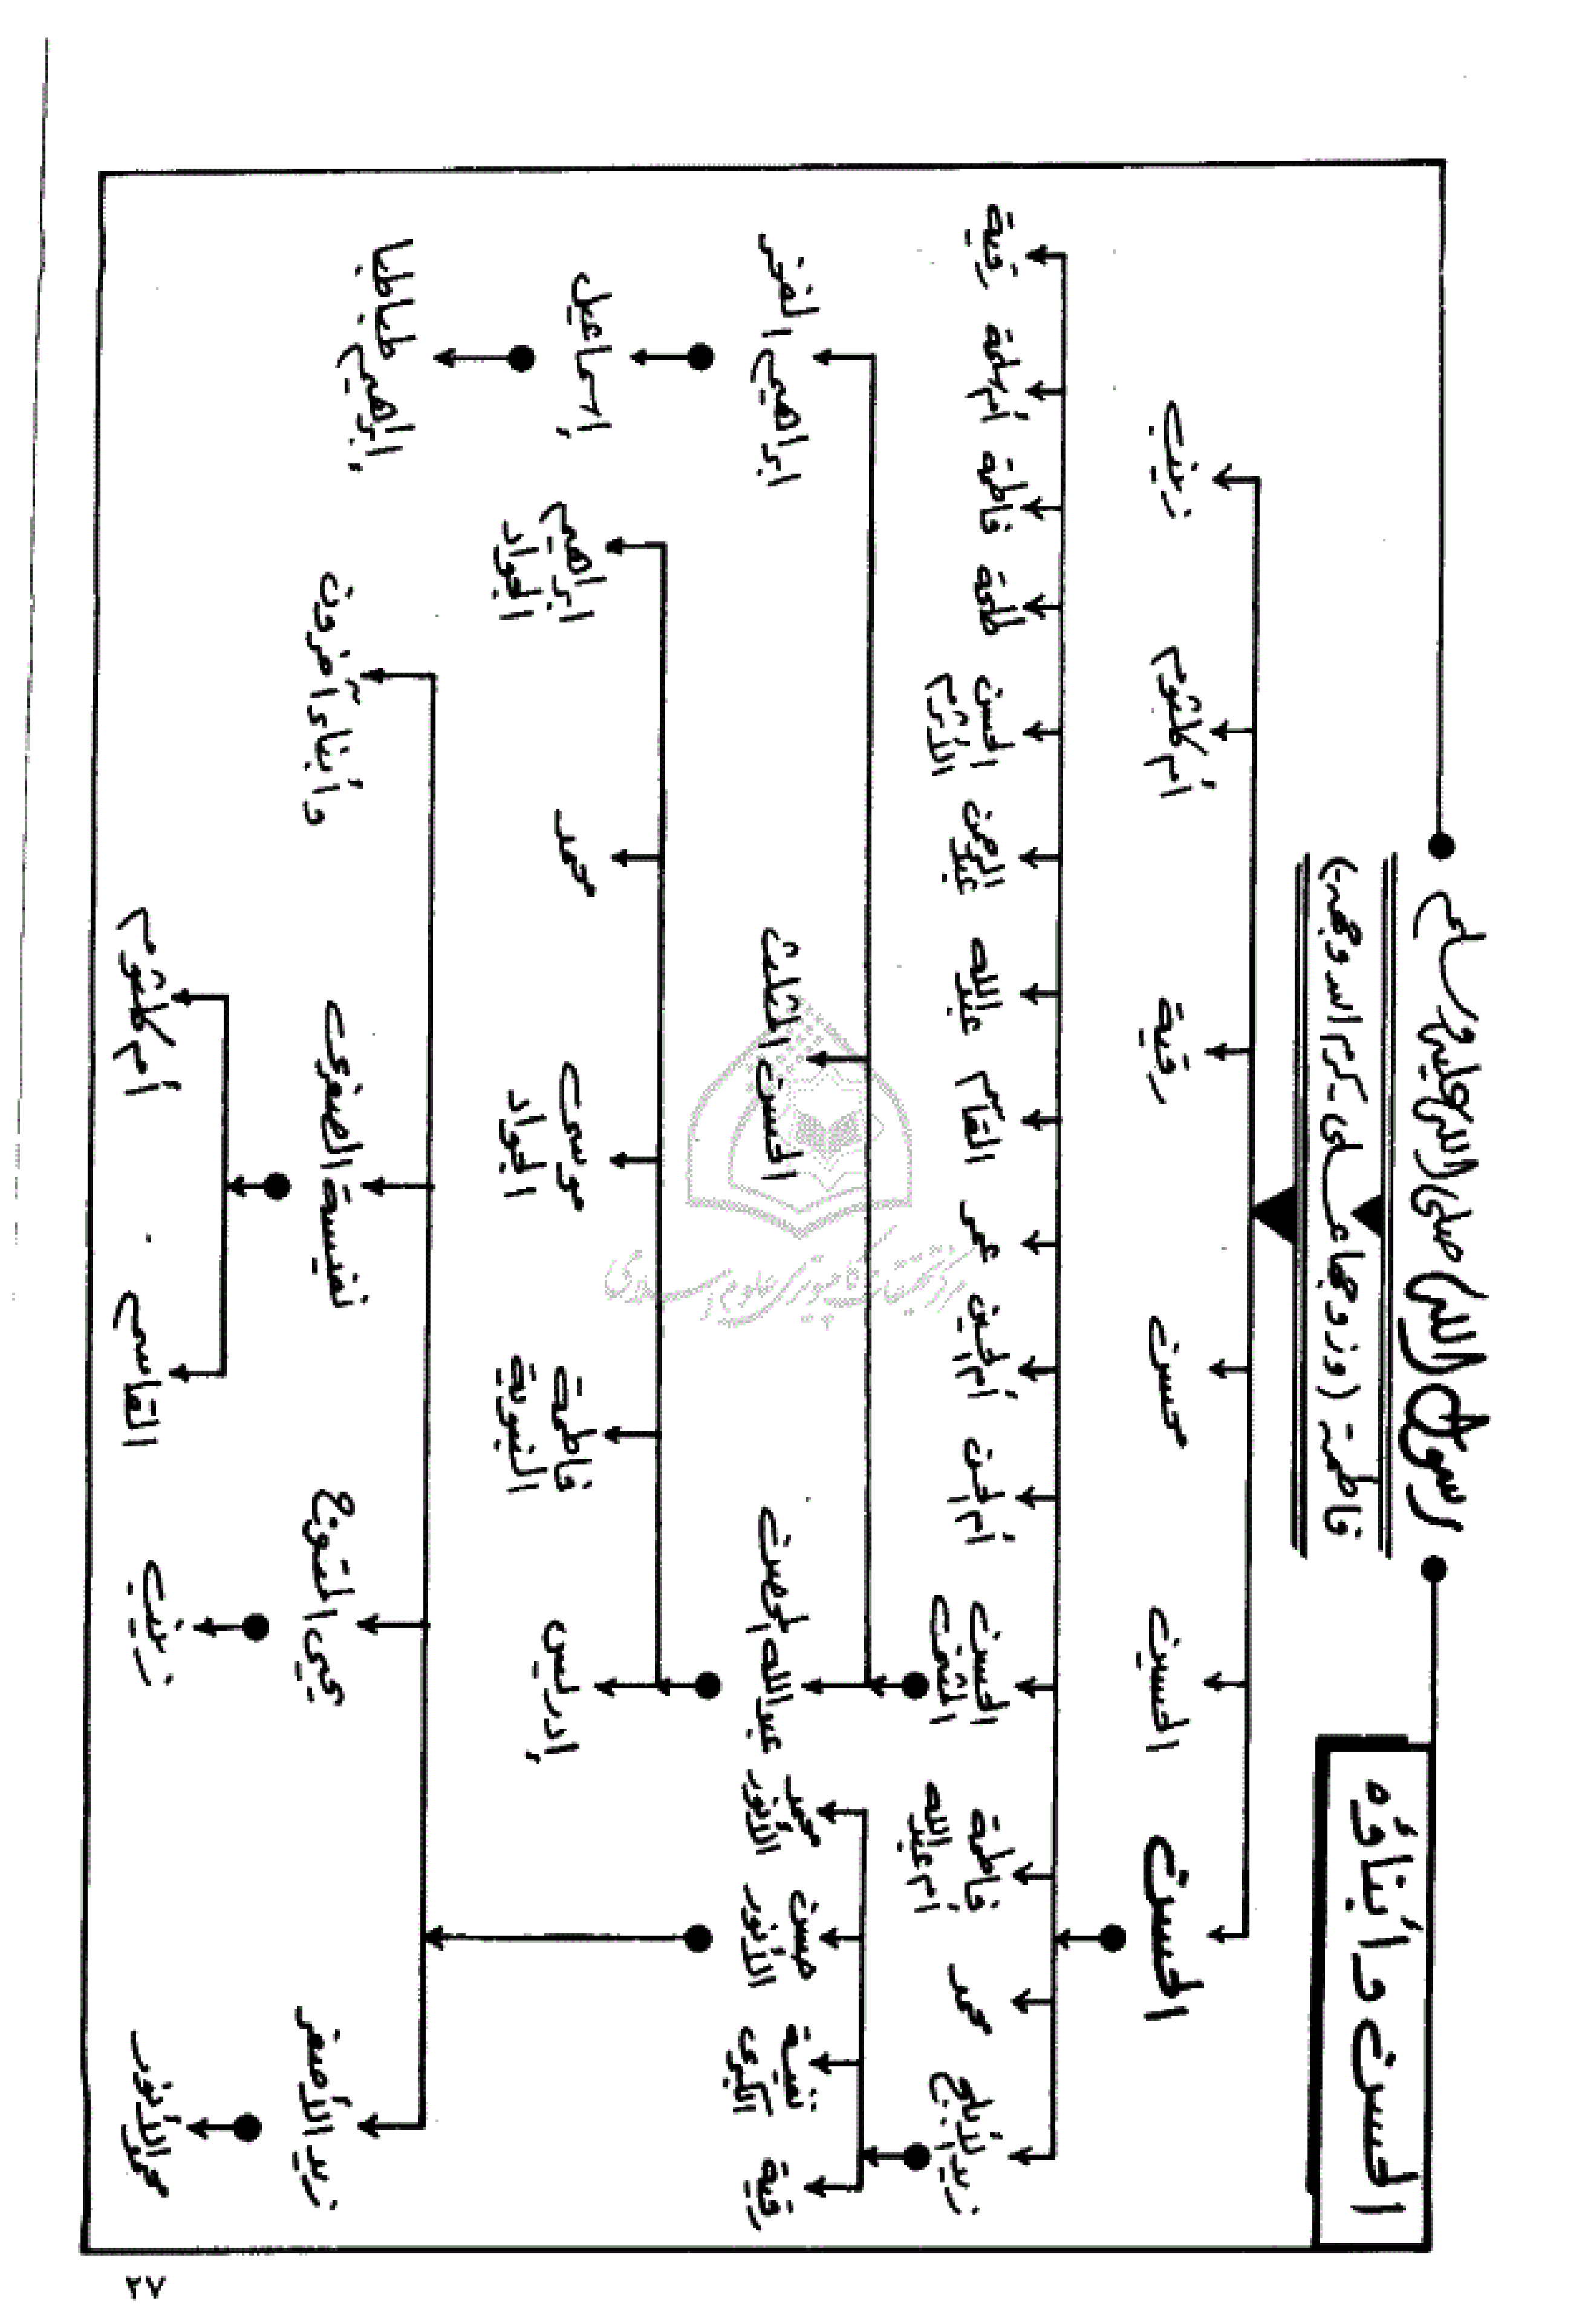 الحسن وأبناؤه
رسول الله صلى الله عليه وسلم
فاطمة (وزوجها على كرم الله وجهه)
الحسن
الحسين
محسن
رقية
أم كلثوم
زينب
زيد الأبلج
محمد
فاطمة أم عبدالله
الحسن المثنى
أم الحسن
أم الحسين
عمر
القاسم
عبدالله
عبدالرحمن
الحسن الأثرم
طلحة
فاطمة
أم سلمة
رقية
رقية
نفيسة الكبرى
حسن الأنور
محمد الأنور
عبدالله المحض
الحسن المثلث
ابراهيم الغمر
إدريس
فاطمة النبوية
موسى الجواد
محمد
ابراهيم الجواد
إسماعيل
زيد الأصغر
يحيى المتوج
نفيسة الصغرى
وأبناء آخرون
إبراهيم طباطبا
محمد الأنور
زينب
القاسم
أم كلثوم
٢٧